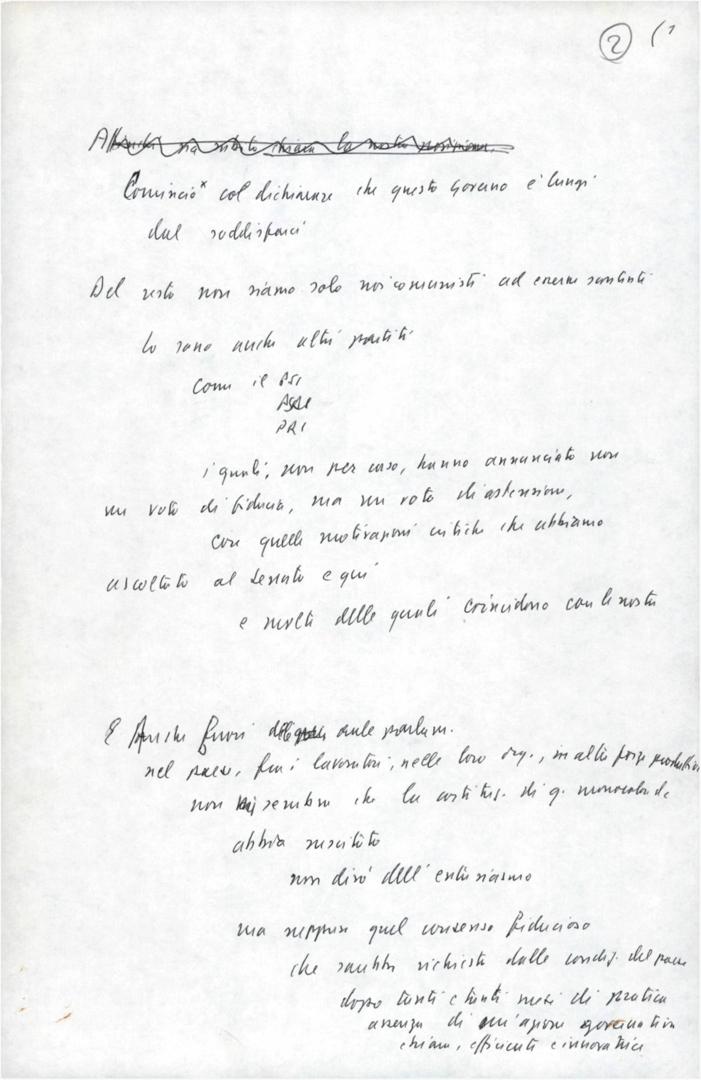 2 (1
Affinché sia subito chiara la nostra posizione.
Comincio col dichiarare che questo Governo è lungi
dal soddisfarci
Del resto non siamo solo noi comunisti ad esserne scontenti
Lo sono anche altri partiti
come il PSI
PRI
i quali, non per caso, hanno annunciato non
un voto di fiducia, ma un voto di astensione,
con quelle motivazioni critiche che abbiamo
ascoltato al Senato e qui
e molte delle quali coincidono con le nostre
E Anche fuori delle aule parlam.
nel paese, fra i lavoratori, nelle loro org., in altre forze produttive
non mi sembra che la costituz. di q. monocolore dc
abbia suscitato
non dirò dell'entusiasmo
ma neppure quel consenso fiducioso
che sarebbe richiesto dalle condiz. del paese
dopo tanti e tanti mesi di pratica
assenza di un'azione governativa
chiara, efficiente e innovatrice